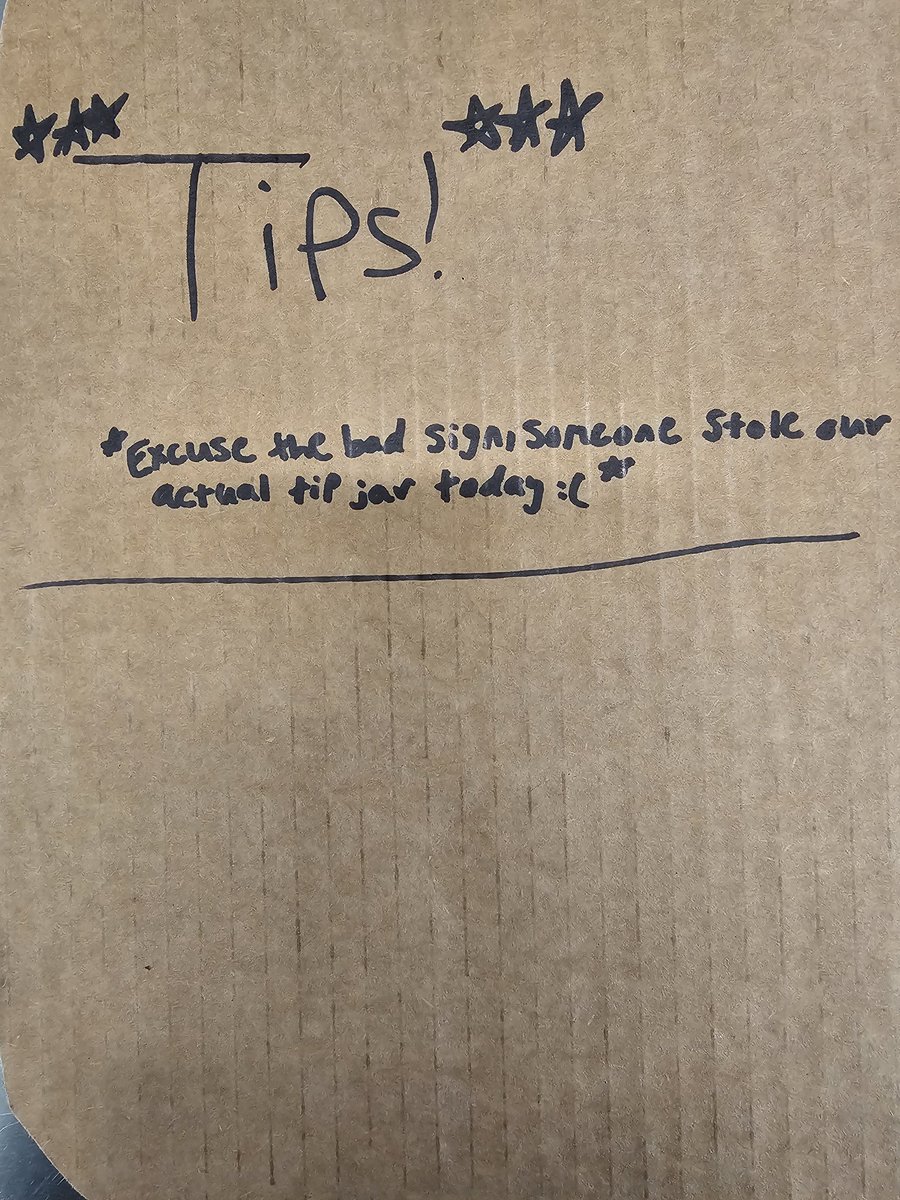 *** Tips! ***
*Excuse the bad sign, someone stole our
actual tip jar today :( *